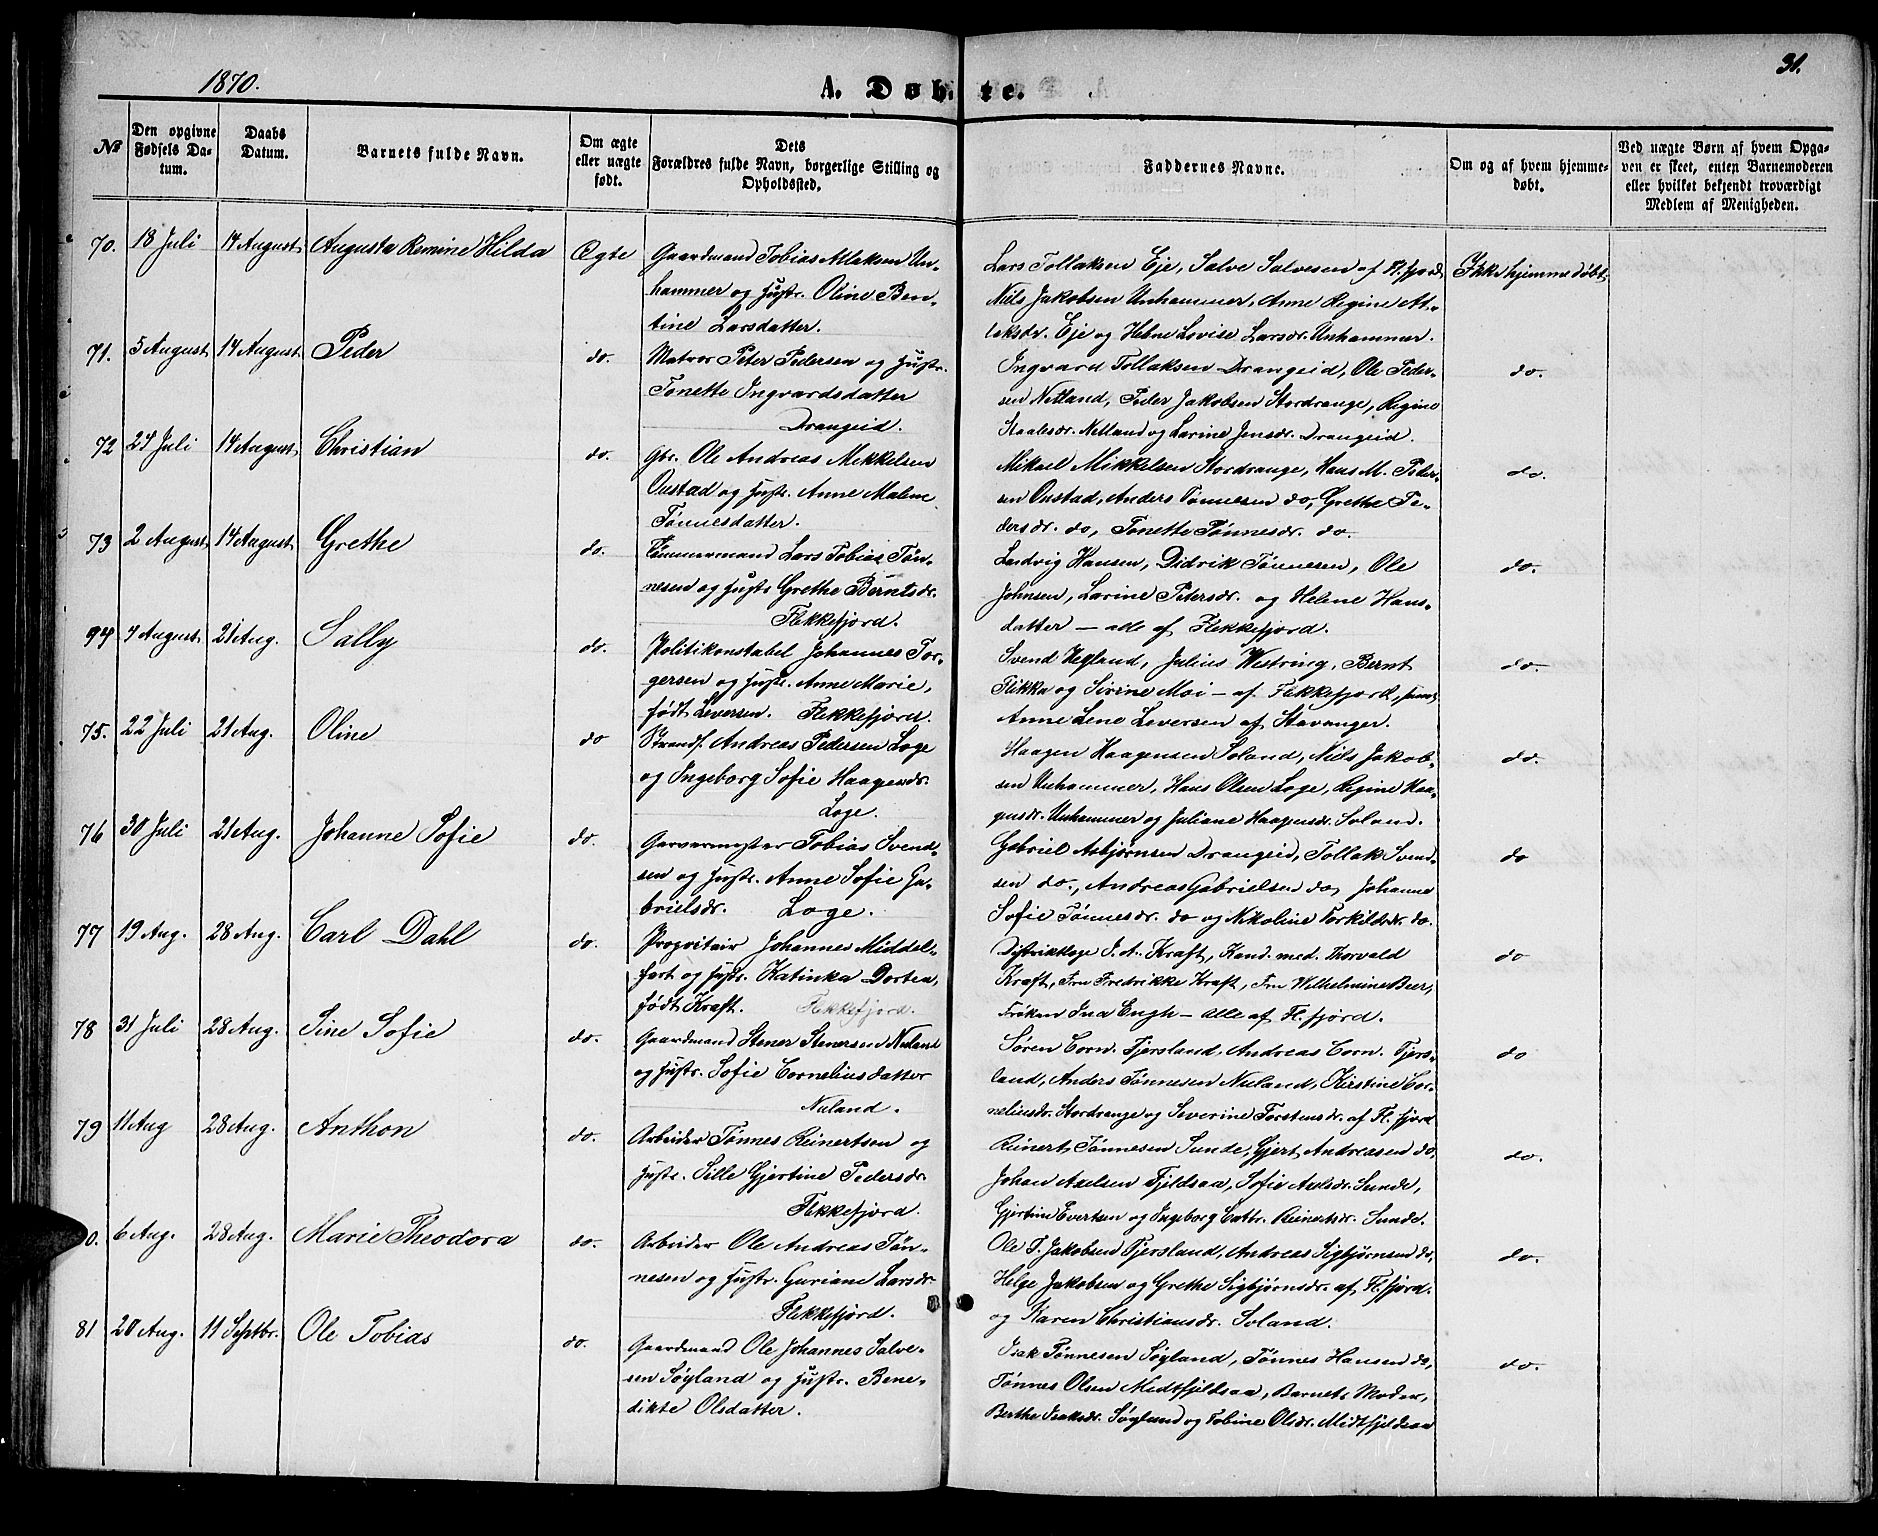 1870.
A. Døbte.
31.
No
Den opgivne Fødsels Datum.
Daabs Datum.
Barnets fulde Navn.
Om ægte eller uægte født.
Dets Forældres fulde Navn, borgerlige Stilling og Opholdssted.
Faddernes Navne.
Om og af hvem hjemmedøbt.
Ved uægte Børn af hvem Opgaven er skeet, enten Barnemoderen eller hvilket bekjendt troværdigt Medlem af Menigheden.
70. 18 Juli 14 August Augusta Remine Hilda Ægte
Gaardmand Tobias Atlaksen Un-
hammer og Hustr. Oline Ben-
tine Larsdatter.
Lars Tollaksen Eje, Salve Salvesen af Fl.fjord,
Niels Jakobsen Unhammer, Anne Regine At-
laksdr. Eje og Helene Lovise Larsdr. Unhammer.
Ikke hjemmedøbt
71. 5 August 14 August Peder do.
Matros Peter Pedersen og Hustr.
Tonette Ingvardsdatter
Drangeid.
Ingvard Tollaksen Drangeid, Ole Peder-
sen Netland, Peder Jakobsen Stordrange, Regine
Staalesdr. Netland og Larine Jensdr. Drangeid.
do.
72 24 Juli 14 August Christian do.
Gbr. Ole Andreas Mikkelsen
Oustad og Hustr. Anne Malene
Tønnesdatter.
Mikael Mikkelsen Stordrange, Hans M. Peder-
sen Oustad, Anders Tønnesen do, Grethe Pe-
dersdr. do, Tonette Tønnesdr. do.
do.
73 2 August 14 August Grethe do.
Tømmermand Lars Tobias Tøn-
nesen og Hustr Grethe Berntsdr.
Flekkefjord.
Ludvig Hansen, Didrik Tønnesen, Ole
Johnsen, Larine Petersdr. og Helene Hans-
datter – alle af Flekkefjord.
do.
94 7 August 21 Aug. Sally do.
Politikonstabel Johannes Tor-
gersen og Hustr. Anne Marie,
født Leversen. Flekkefjord.
Svend Hegland, Julius Westring, Bernt
Flikka og Sirine Moi – af Flekkefjord, samt
Anne Lene Leversen af Stavanger.
do.
75. 22 Juli 21 Aug. Oline do
Strands. Andreas Pedersen Loge
og Ingeborg Sofie Haagensdr.
Loge.
Haagen Haagensen Soland, Niels Jakob-
sen Unhammer, Hans Olsen Loge, Regine Haa-
gensdr. Unhammer og Juliane Haagensdr. Soland.
do.
76 30 Juli 21 Aug. Johanne Sofie do.
Garvermester Tobias Svend-
sen og Hustr. Anne Sofie Ga-
brielsdr. Loge.
Gabriel Asbjørnsen Drangeid, Tollak Svend-
sen do., Andreas Gabrielsen do, Johanne
Sofie Tønnesdr. do og Nikoline Torkildsdr. do.
do
77 19 Aug. 28 Aug. Carl Dahl do.
Proprietair Johannes Middel-
fart og Hustr. Katinka Dortea,
født Kraft. Flekkefjord.
Distriktlæge J. A. Kraft, Kand. med. Thorvald
Kraft, Fru Fredrikke Kraft, Fru Wilhelmine Beer,
Frøken Ina Engh – alle af Fl.fjord.
do
78 31 Juli 28 Aug. Sine Sofie do.
Gaardmand Stener Stenersen Nuland
og Hustr. Sofie Corneliusdatter
Nuland.
Søren Corn. Tjersland, Andreas Corn. Tjers-
land, Anders Tønnesen Nuland, Kirstine Cor-
neliusdr. Stordrange og Severine Torstensdr. af Fl.fjord
do
79 11 Aug 28 Aug. Anthon do.
Arbeider Tønnes Reinertsen og
Hustr. Sille Gjertine Pedersdr.
Flekkefjord.
Reinert Tønnesen Sunde, Gjert Andreassen do,
Johan Axelsen Fjeldsaa, Sofie Axelsdr. Sunde,
Gjertine Evertsen og Ingeborg Cathr. Reinertsdr. Sunde.
do.
0. 6 Aug. 28 Aug. Marie Theodora do.
Arbeider Ole Andreas Tøn-
nesen og Hustr. Guriane Larsdr.
Flekkefjord.
Ole T. Jakobsen Tjersland, Andreas Sigbjørnsen do,
Helge Jakobsen og Grethe Sigbjørnsdr. af Fl.fjord.
og Karen Christiansdr. Soland.
do.
81 20 Aug. 11 Septbr. Ole Tobias do.
Gaardmand Ole Johannes Salve-
sen Søyland og Hustr. Bene-
dikte Olsdatter.
Isak Tønnesen Søyland, Tønnes Hansen do,
Tønnes Olsen Midtfjeldsaa, Barnets Moder,
Berthe Isaksdr. Søyland og Tobine Olsdr. Midtfjeldsaa
do.